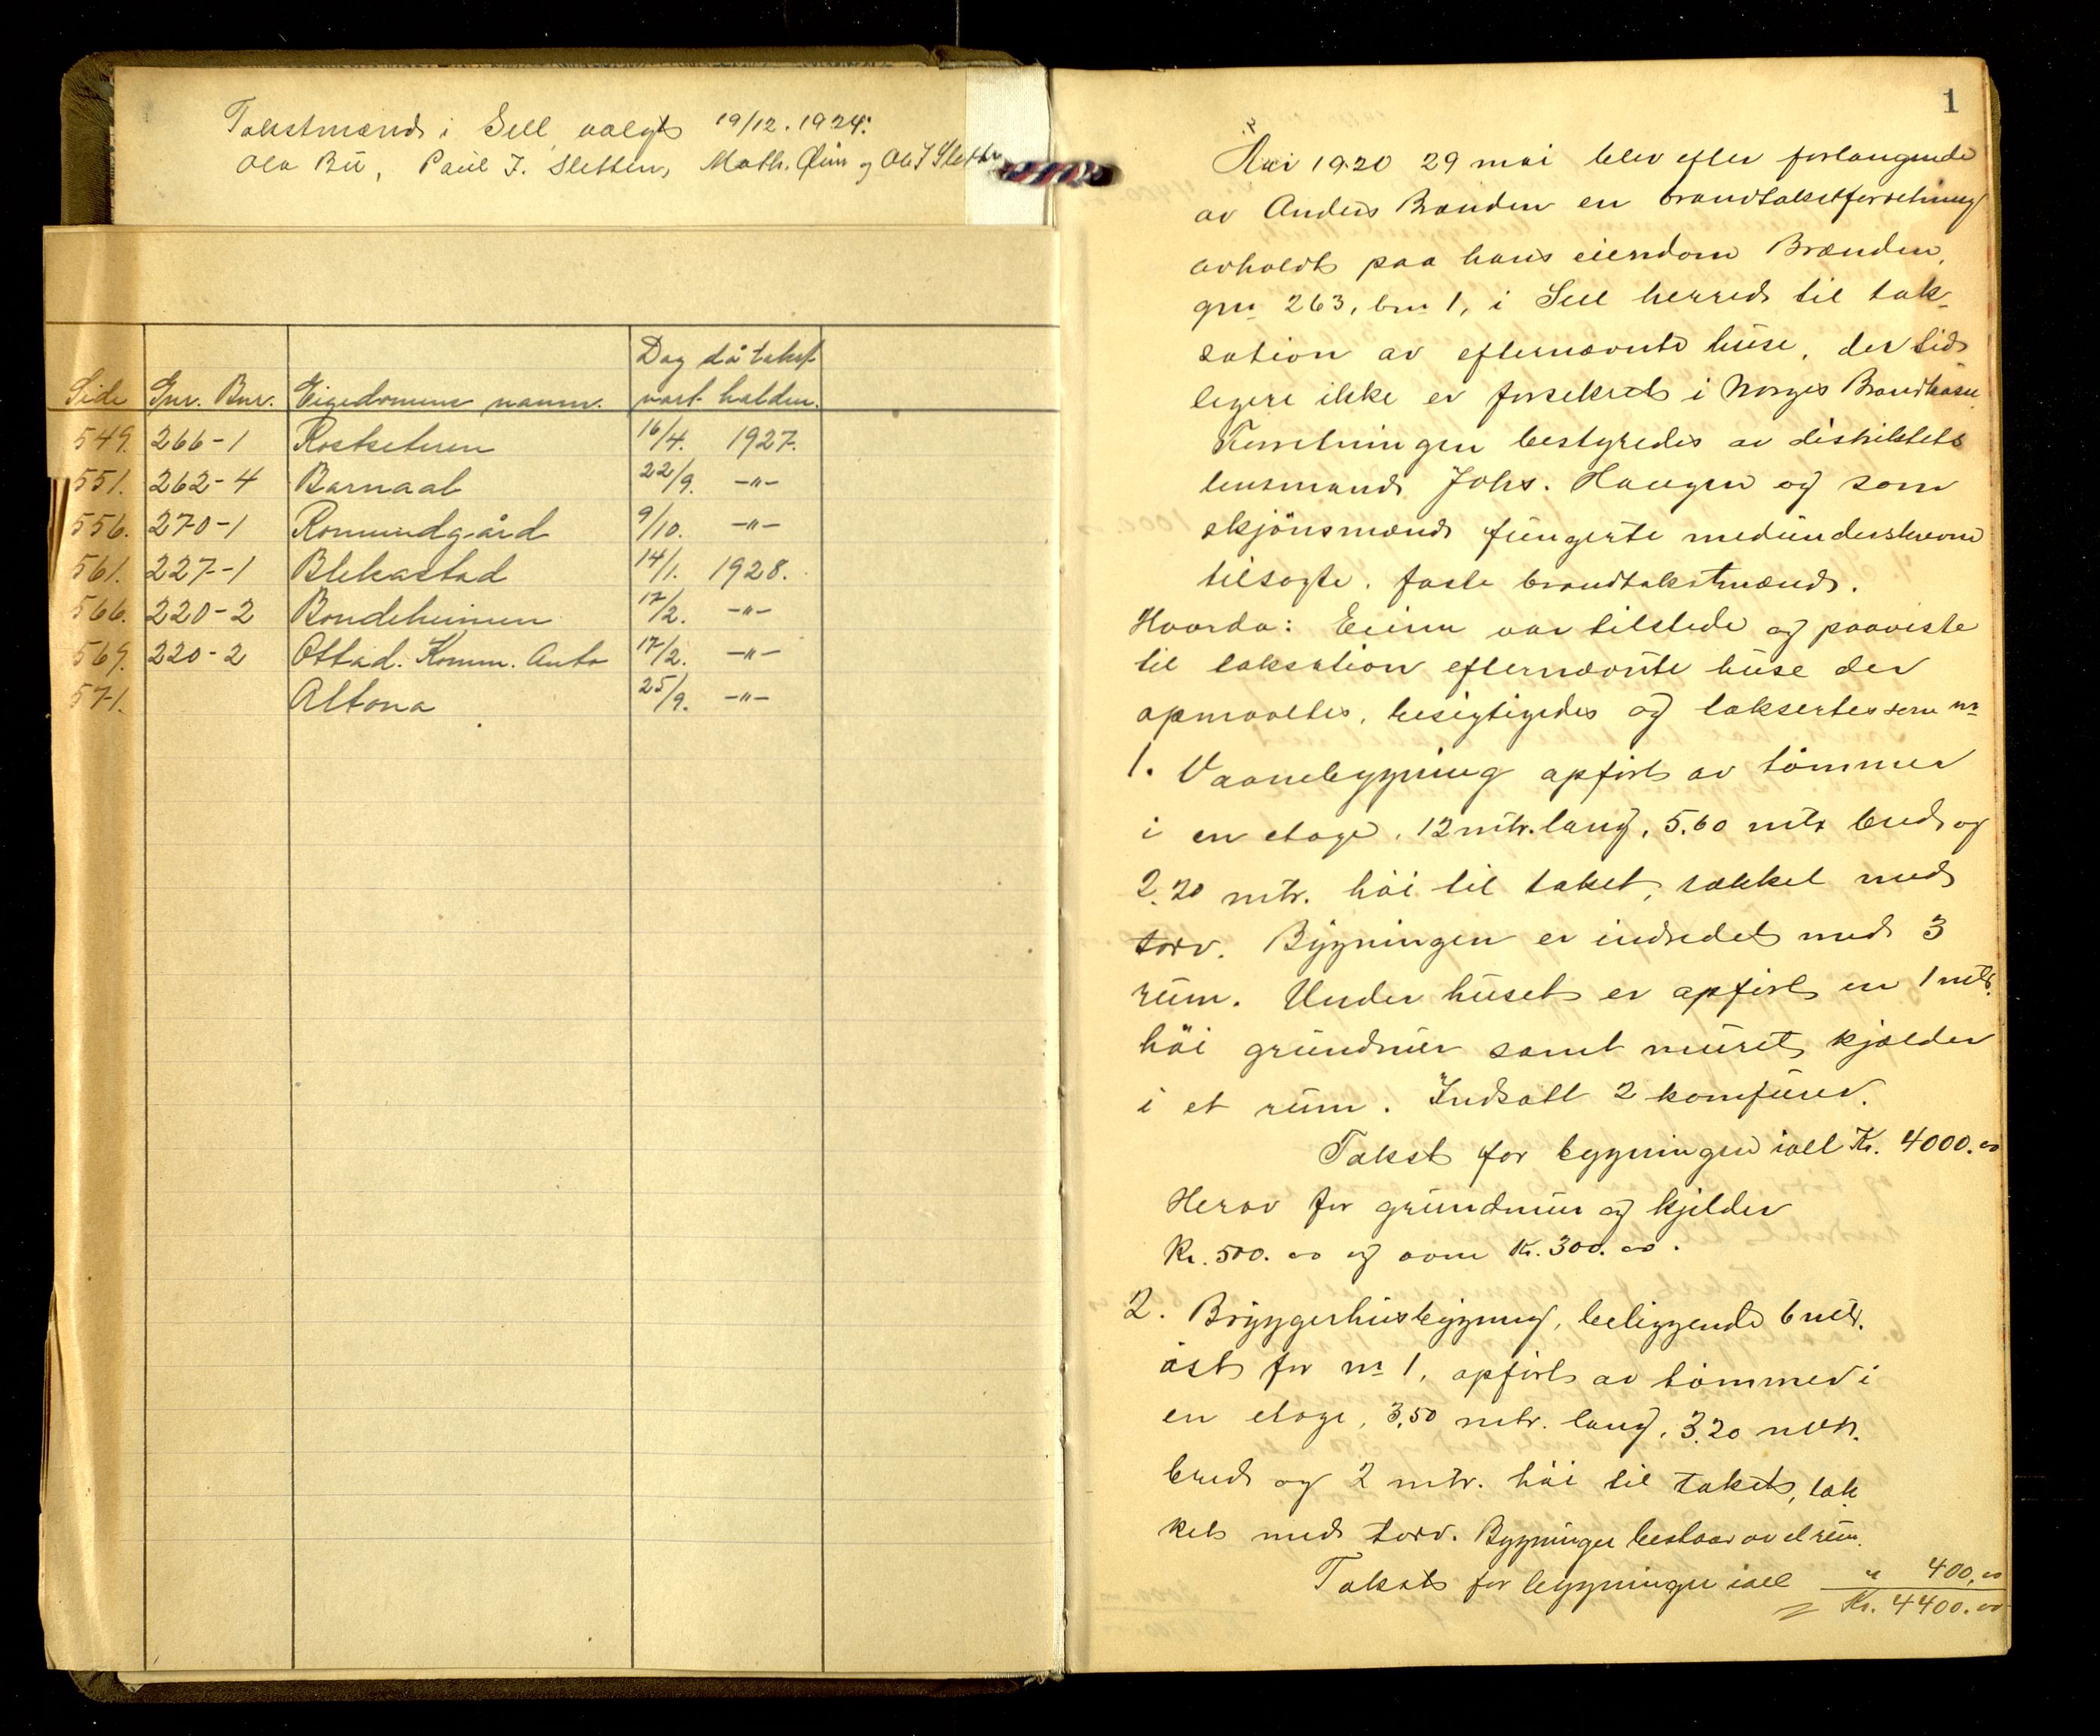 Takstmænd i Sell valgt 19/12. 1924:
Ola Bu, Paul J. Sletten, Math. Øien og Ola J Sletten
Dag då takst
Side Gnr. Bnr. Eigedomens namn. vart halden.
549. 266-1 Rostseteren 16/4. 1927.
551. 262-4 Barnaal 22/9. -"-
556. 270-1 Romundgård 9/10. -"-
561. 227-1 Blekastad 14/1. 1928.
566. 220-2 Bondeheimen 17/2. -"-
569. 220-2 Ottad. Komm. Auto 17/2. -"-
571. Altona 25/9. -"-
1
Aar 1920 29 mai blev efter forlangende
av Anders Brænden en brandtakstforretning
avholdt paa hans eiendom Brænden,
gnr 263, bnr 1, i Sell herred til tak-
sation av efternævnte huse, der tid-
ligere ikke er forsekret i Norges Brandkasse
Forretningen bestyredes av distriktets
lensmand Johs. Haugen og som
skjönsmænd fungerte medunderskrevne
tilsagte, faste brandtakstmænd.
Hvorda: Eieren var tilstede og paaviste
til taksation efternævnte huse der
opmaaltes, besigtigedes og taksertes som nr
1. Vaanebygning opfört av tömmer
i en etage, 12 mtr. lang, 5.60 mtr bred og
2.20 mtr. höi til taket, tækket med
torv. Bygningen er indredet med 3
rum. Under huset er opfört en 1 mtr.
höi grundmur samt muret kjælder
i et rum. Indsatt 2 komfurer.
Takst for bygningen ialt Kr. 4000.00
Herav for grundmur og kjelder
Kr. 500.00 og ovne Kr. 300.00.
2. Bryggerhusbygning, beliggende 6 mtr.
öst for nr 1, opfört av tömmer i
en etage, 3,50 mtr. lang, 3.20 mtr.
bred og 2 mtr. höi til taket, tæk
ket med torv. Bygningen bestaar av et rum.
Takst for bygningen ialt " 400,00
= Kr. 4400.00